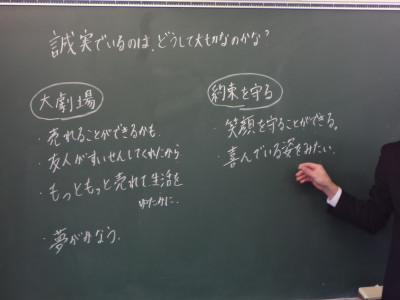 誠実でいるのは、どうして大切なのかな?
大劇場
・売れることができるかも.
・友人がすいせんしてくれたから
・もっともっと売れて生活を
ゆたかに.
・夢がかなう.
約束を守る
・笑顔を守ることができる。
・喜んでいる姿をみたい.